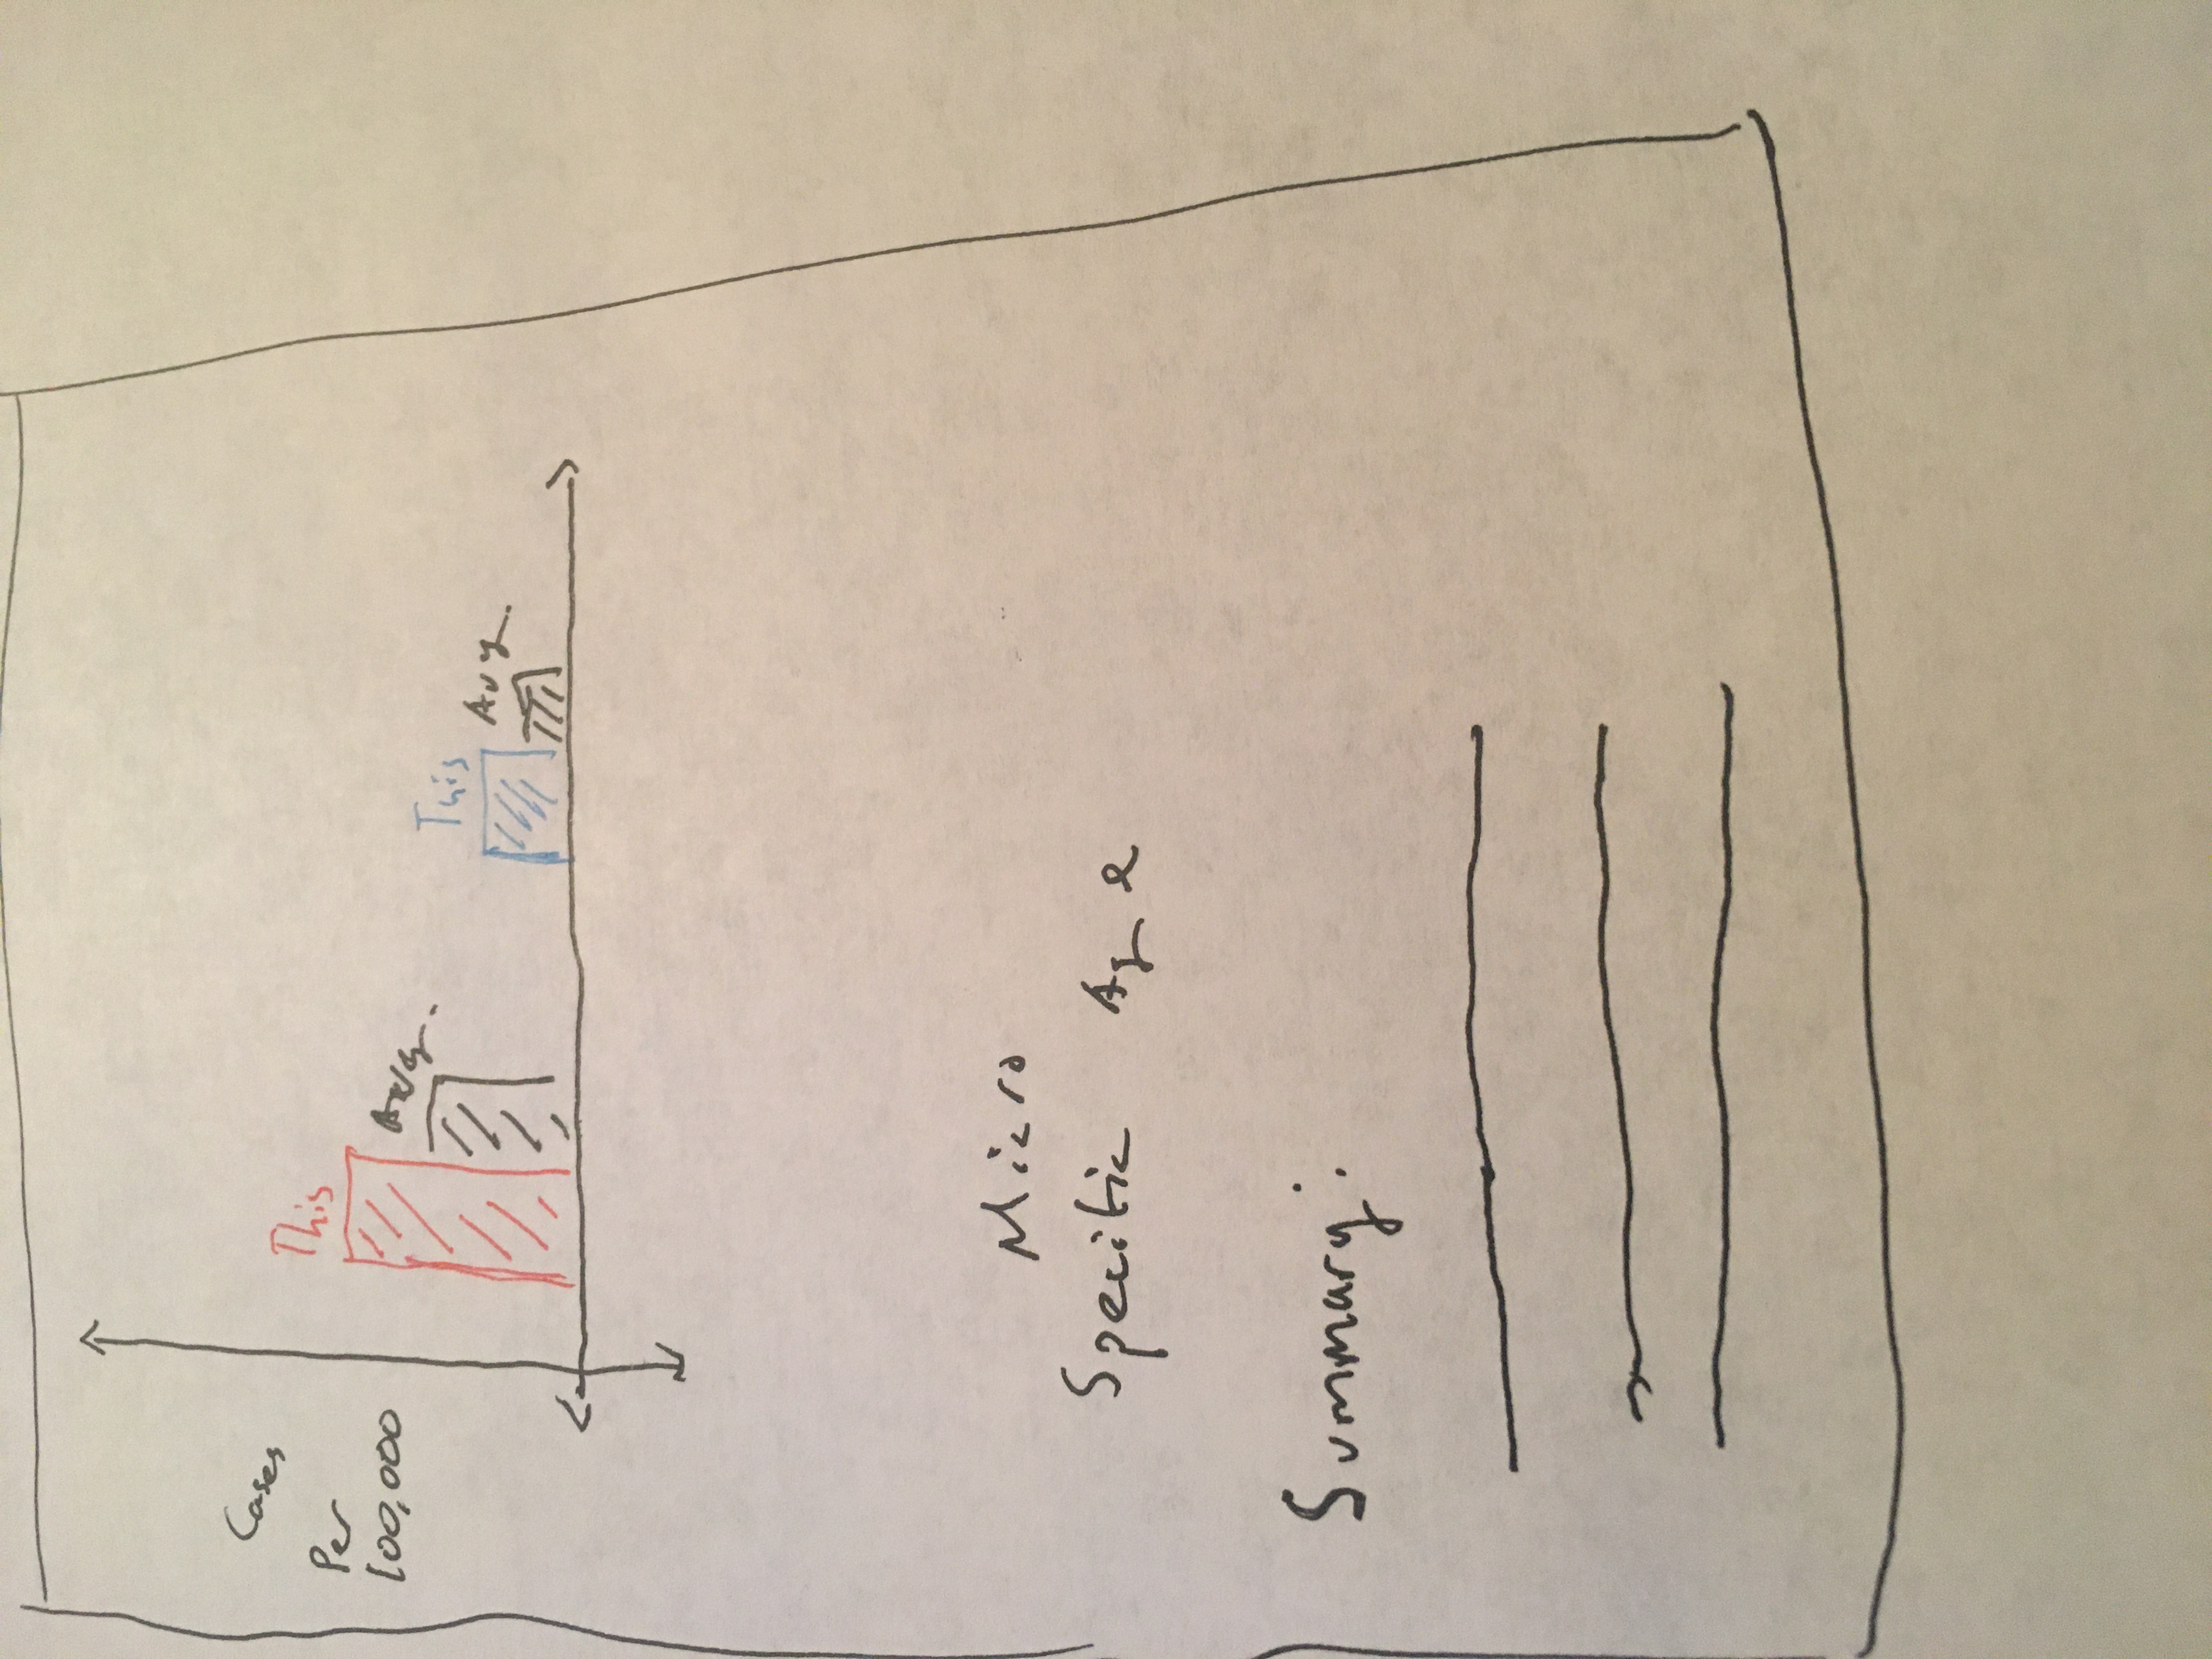 Cases
Per
100,000
This
Avg.
This
Avg.
Micro
Specific Age
Summary: